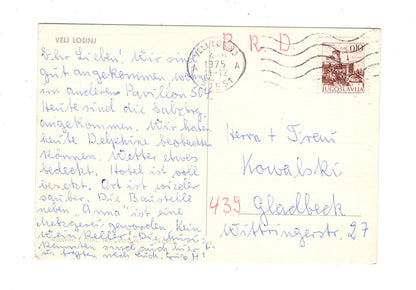 VELI LOSINJ
Ihr Lieben! Wir sind
gut angekommen, wohnen
im anderen Pavillon 504.
Heute sind die Salzbg.
angekommen. Wir haben
heute Delphine beobachten
können. Wetter etwas
bedeckt. Hotel ist voll
besetzt. Ort ist wieder
sauber. Die Baustelle
neben "Anna" ist eine
Metzgerei geworden. Kein
Weinkeller! Die
kannten sind auch hier
u. fragen nach Euch.
B. R. D.
VELI LOSINJ
1975
A
51551
0,10
JUGOSLAVIJA
Herrn + Frau
Kowalski
439 Gladbeck
Wittringerstr. 27